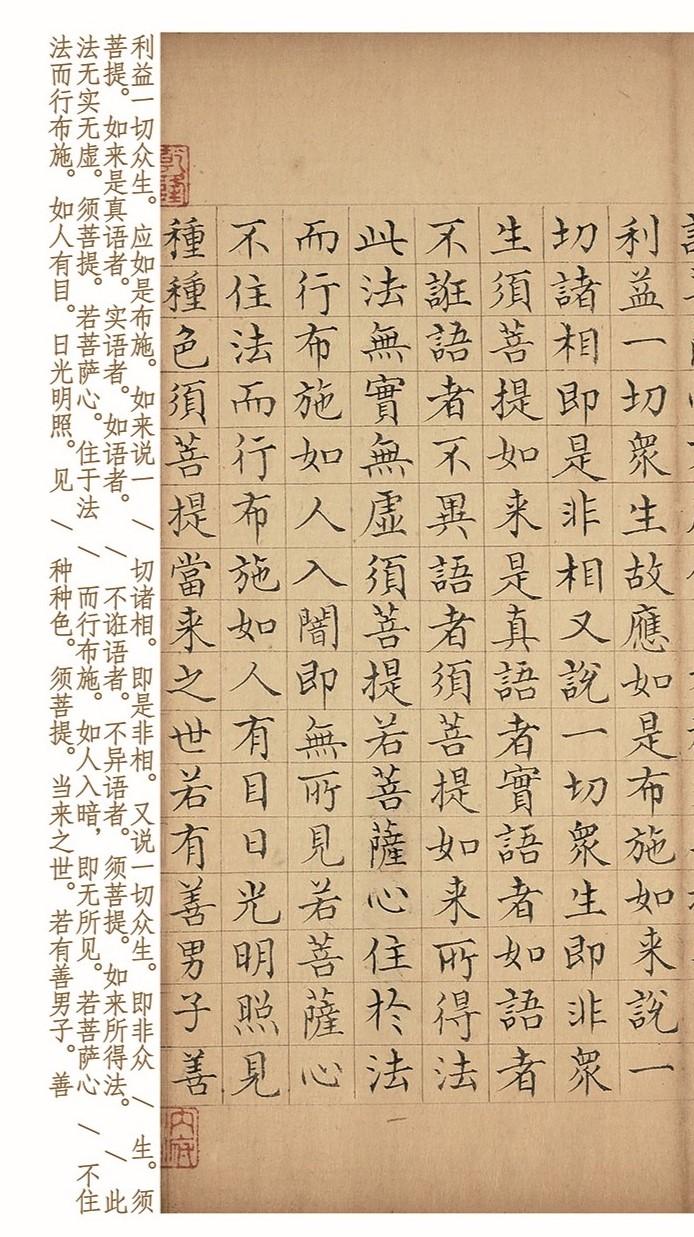 利益一切衆生故應如是布施如来說一
切諸相即是非相又說一切衆生即非衆
生須菩提如来是真語者實語者如語者
不誑語者不異語者須菩提如来所得法
此法無實無虛須菩提若菩薩心住於法
而行布施如人入闇即無所見若菩薩心
不住法而行布施如人有目日光明照見
種種色須菩提當来之世若有善男子善
内府
利益一切众生。应如是布施。如来说一 / 切诸相。即是非相。又说一切众生。即非众 / 生。须
菩提。如来是真语者。实语者。如语者。 / 不诳语者。不异语者。须菩提。如来所得法。 / 此
法无实无虚。须菩提。若菩萨心。住于法 / 而行布施。如人入暗，即无所见。若菩萨心 / 不住
法而行布施。如人有目。日光明照。见 / 种种色。须菩提。当来之世。若有善男子。善